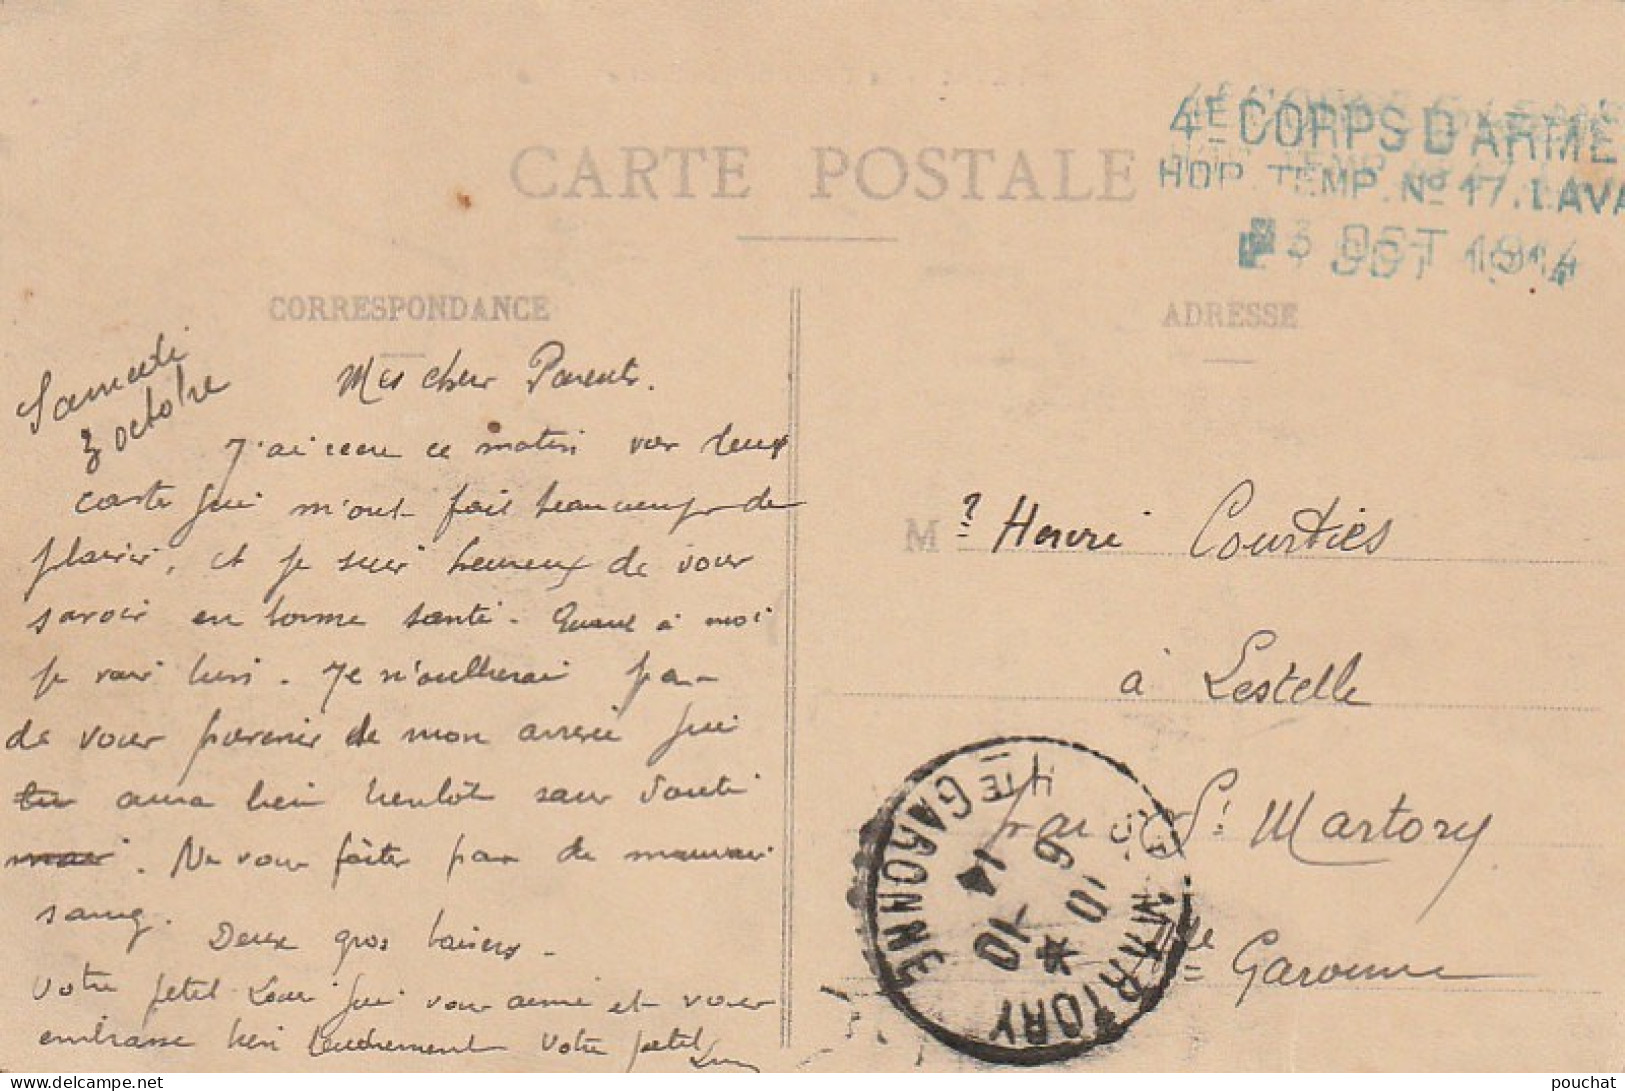 4E CORPS D'ARME
HOP. TEMP. No 17. LAVA
3 OCT 1914
CARTE POSTALE
CORRESPONDANCE
ADRESSE
Samedi
3 octobre
Mes cher Parents.
J'ai recu ce matin vos deux
carte qui m'ont fait beaucoup de
plaisir, et je suis heureux de vous
savoir en bonne santé. Quant à moi
je vais bien. Je n'oublierai pas
de vous parvenir de mon arrivée qui
aura bien bientôt sans doute
. Ne vous faites pas de mauvais
sang.
Deux gros baisers.
Votre petit Louis qui vous aime et vous
embrasse bien tendrement Votre petit
Mr Henri Courties
à Lestelle
par St Martory
Hte Garonne
ST MARTORY
HTE GARONNE
6 10
*
10 -10
14
pouchat